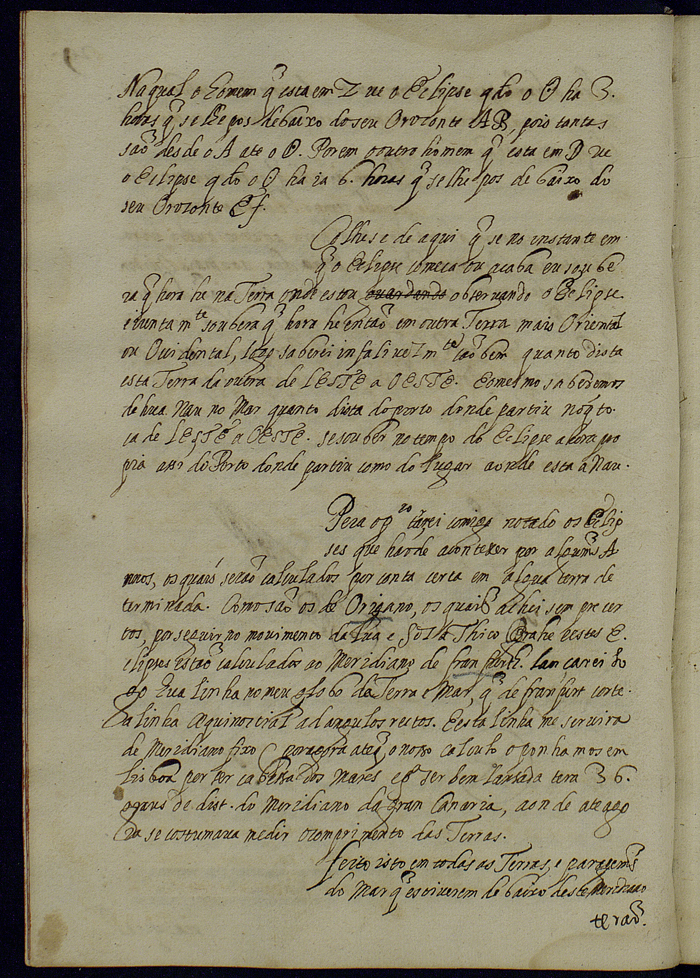 Na qual o homem q̃ esta em Z ve o Eclipse qdo o O ha 3.
horas q̃ se lhe pos debaixo do seu Orozonte AB, pois tantas
saõ desde o A ate o O. Porem o outro homem q̃ esta em D ve
o Eclipse qdo o O ha ia 6. horas q̃ se lhe pos de baixo do
seu Orozonte Ef.
Colhese de aqui q̃ se no instante em
q̃ o Eclipse comeca ou acaba eu soube
ra q̃ hora he na Terra onde estou guardando observando o Eclipse.
e iuntamte soubera q̃ hora he entaõ em outra Terra mais Oriental
ou Occidental, logo saberei infalivelmte taõ bem quanto dista
esta Terra da outra de LESTE a OESTE. E o mesmo saberemos
de hũa Nau no Mar quanto dista do porto donde partiu no q̃ to
ca de LESTE a OESTE. se souber no tempo do Eclipse a hora pro
pria assi do Porto donde partiu como do lugar aonde esta a Nau.
Pera o qro terei comigo notado os Eclip
ses que haõ de acontecer por alguns A
nnos, os quais seraõ calculados por conta certa em algũa terra de
terminada. Como saõ os de Origano, os quais achei sempre cer
tos, por seguir no movimento da Lũa e Sol a Thico Brahe e estes E
clipses estaõ calculados ao Meridiano de franfurth. lancarei lo
go hũa linha no meu globo da Terra e Mar, q̃ de franfurt corte
a linha Æquinoccial ad angulos rectos. E esta linha me servira
de Meridiano fixo (por agora ate q̃ o noso calculo o ponhamos em
Lisboa por ser cabessa dos Mares e p ser bem lansada tem 36.
graus de dist. do Meridiano da gran Canaria, aonde ate ago
ra se costumava medir o comprimento das Terras.
feito isto em todas as Terras, e paragems
do Mar q̃ estiverem de baixo deste Meridiano
teraõ.